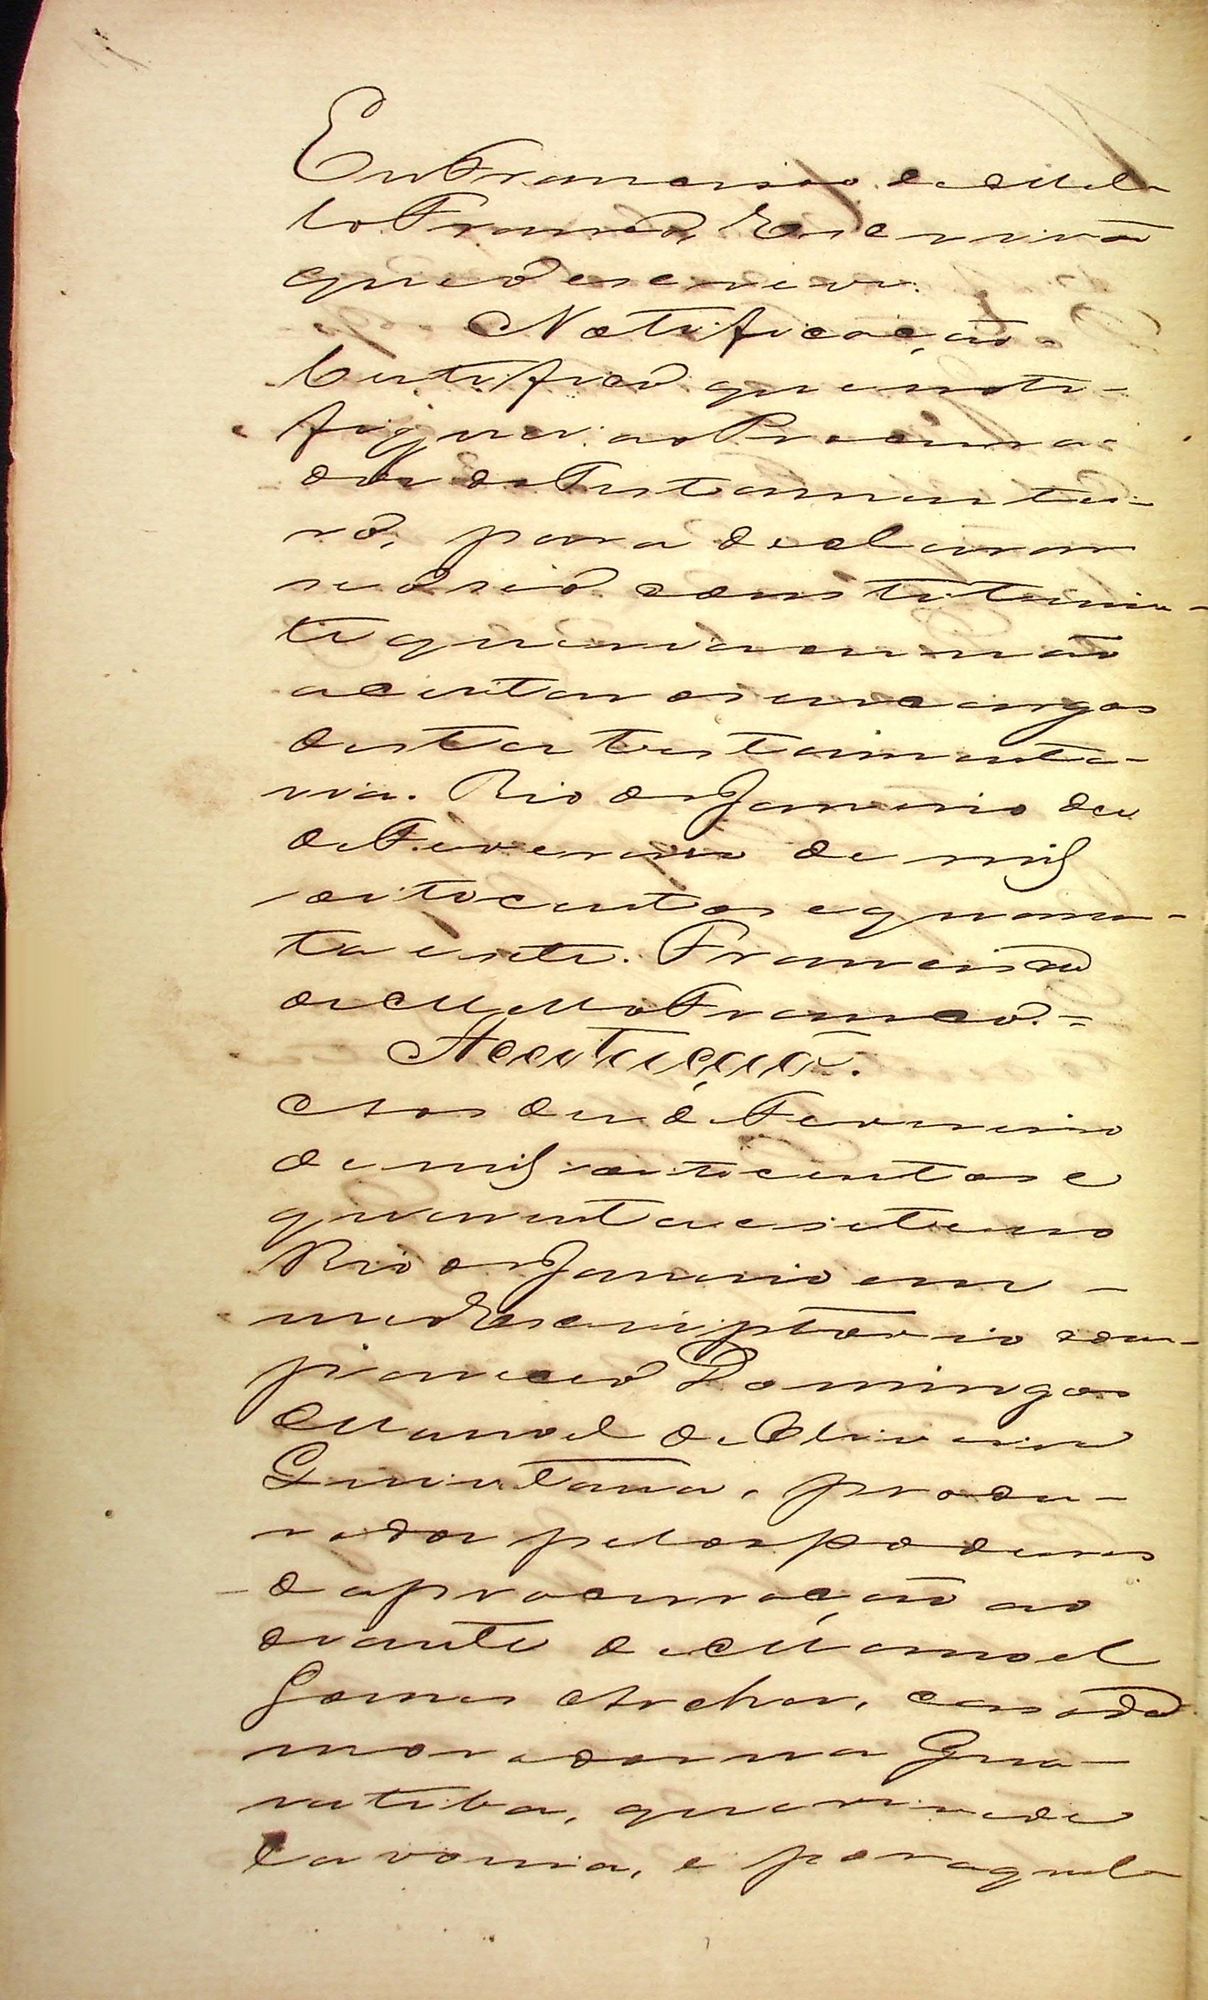 Eu Francisco de Mel-
lo Franco, Escrivão
que o escrevi.
Notificação.
Certifico que noti-
fiquei ao Procura-
dor do Testamentei-
ro, para declarar
se o seu constituin-
te queria ou não
aceitar os encargos
desta testamenta-
ria. Rio de Janeiro dez
de Fevereiro de mil
oitocentos e quaren-
ta e sete. Francisco
de Mello Franco.=
Aceitação.
Aos dez de Fevereiro
de mil oitocentos e
quarenta e sete no
Rio de Janeiro em -
meo Escriptorio com-
pareceo Domingos
Manoel de Oliveira
Quintana, procu-
rador pelos poderes
da procuração ao
diante de Manoel
Gomes Archer, casado
morador na Gua-
ratiba, que vive de
lavoura, e por aquel-